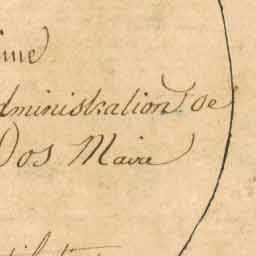 ime
dministration De
Dos Maire